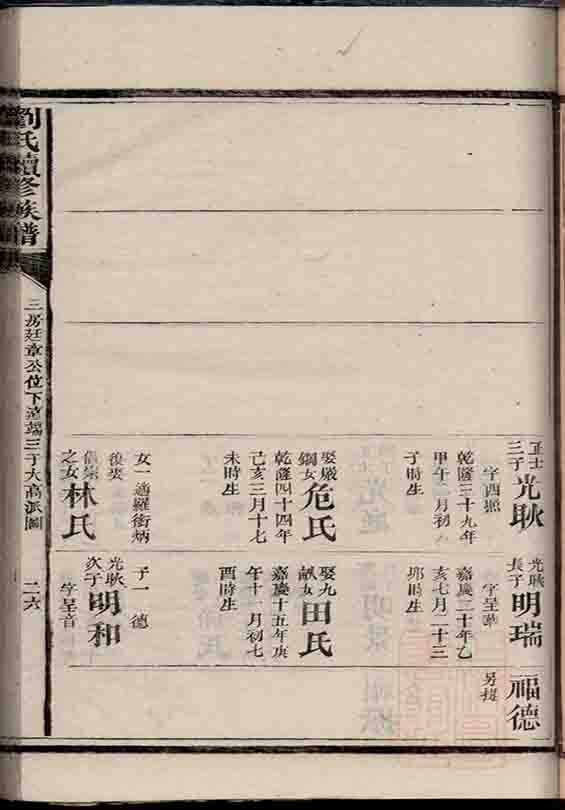 正士
三子
光耿
字酉
乾隆三十九年
甲午二月初八
子時生
娶嚴
鋼女
危氏
乾隆四十四年
己亥三月十七
未時生
女一適羅衡炳
後娶
之女
林氏
光耿
長子
明瑞
字呈華
嘉慶二十年乙
亥七月二十三
卯時生
娶九
畝女
田氏
嘉慶十五年庚
午十一月初七
酉時生
子一 德
光耿
次子
明和
字呈音
福德
另提
劉氏續修族譜
三房廷章公位下遠端三子大高派圖
二六